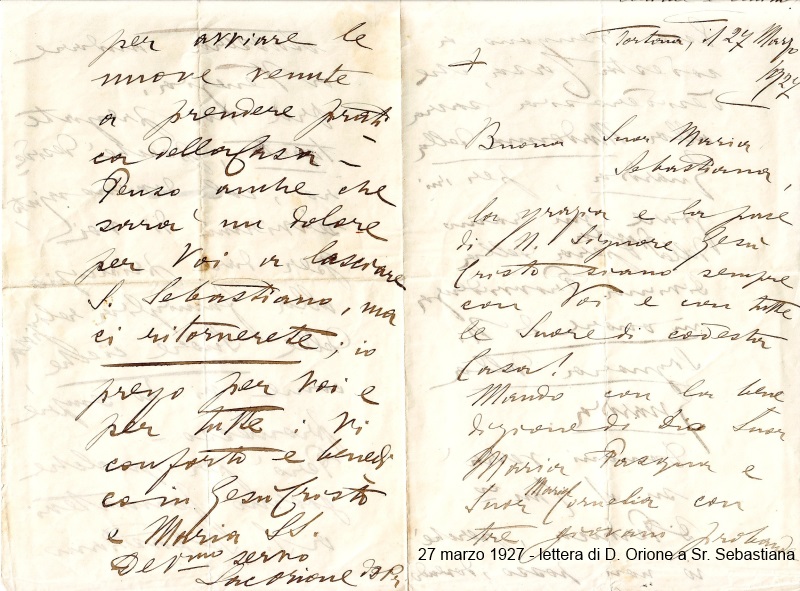 Tortona, il 27 Marzo
1927
+
Buona Suor Maria
Sebastiana,
la grazia e la pace
di N. Signore Gesù
Cristo siano sempre
con Voi e con tutte
le Suore di codesta
Casa!
Mando con la bene
dizione di Dio Suor
Maria Pasqua e
Suor Maria Cornelia con
tre giovani proban
per avviare le
nuove venute
a prendere prati
ca della Casa –
Penso anche che
sarrà un dolore
per Voi a lasciare
S. Sebastiano, ma
ci ritornerete; io
prego per Voi e
per tutte: Vi
conforto e benedi
co in Gesù Cristo
e Maria SS.
Dev.mo servo
Sac Orione
27 marzo 1927 - lettera di D. Orione a Sr. Sebastiana